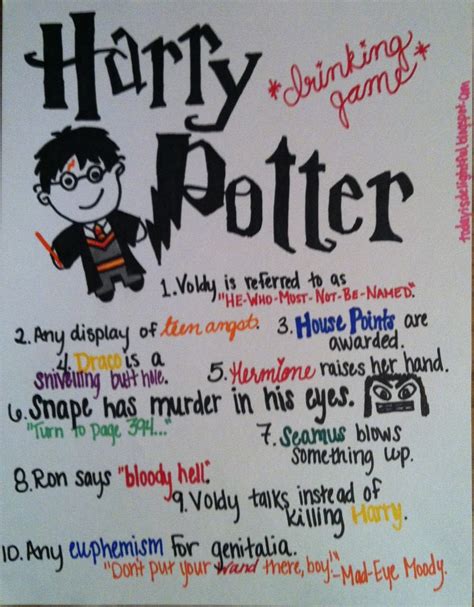 Harry
*drinking game*
Potter
todayisdelightful.blogspot.com
1. Voldy is referred to as
"HE-WHO-MUST-NOT-BE-NAMED."
2. Any display of teen angst.
3. House Points are
awarded.
4. Draco is a
snivelling butt hole.
5. Hermione raises her hand.
6. Snape has murder in his eyes.
"Turn to page 394..."
7. Seamus blows
something up.
8. Ron says "bloody hell."
9. Voldy talks instead of
killing Harry.
10. Any euphemism for genitalia.
"Don't put your wand there, boy!"
-Mad-Eye Moody.